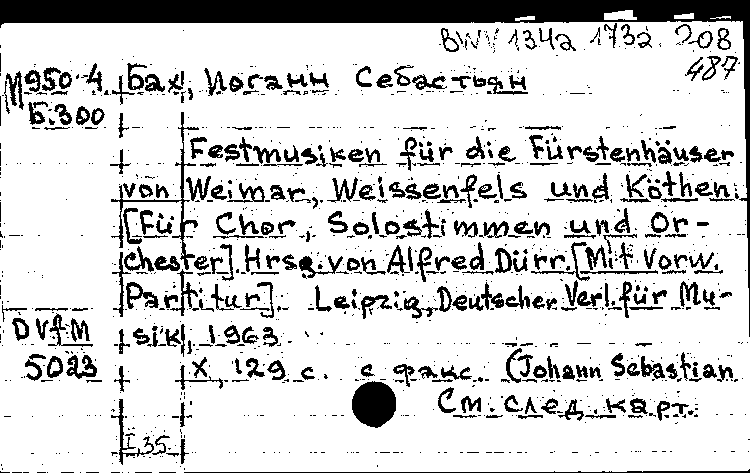 BWV 134a 173a 208
487
М950-4 Бах, Иоганн Себастьян
Б.300
Festmusiken für die Fürstenhäuser
von Weimar, Weissenfels und Köthen.
[Für Chor, Solostimmen und Or-
chester]. Hrsg. von Alfred Dürr. [Mit Vorw.
Partitur]. Leipzig, Deutscher Verl. für Mu-
DVfM sik, 1963.
5023 X, 129 с. с факс. (Johann Sebastian
См. след. карт.
I,35